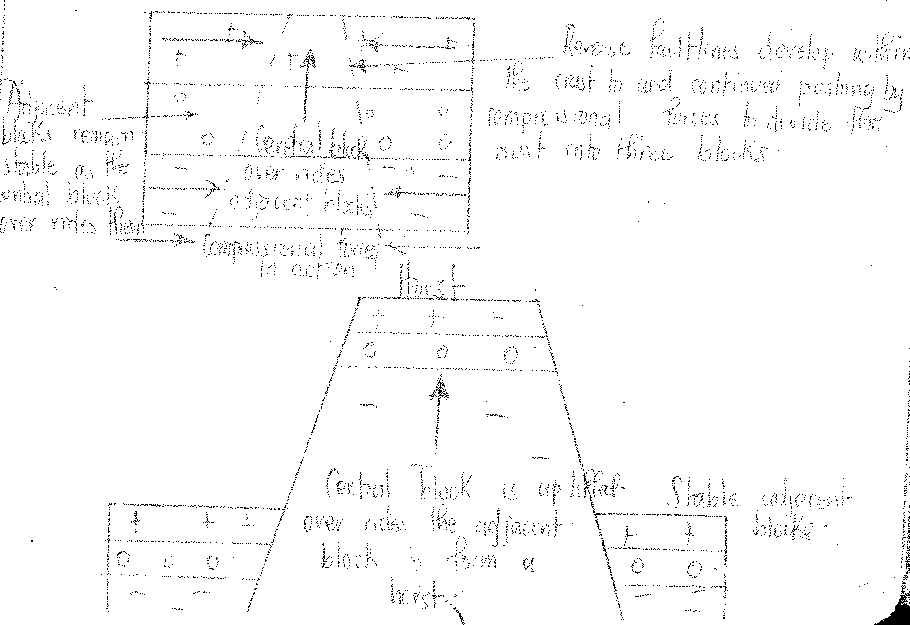 Reverse faultlines develop within
the crust to and continous pushing by
compressional forces to divide the
crust into three blocks.
Adjacent
blocks remain
stable as the
central block
over rides them
Central block
over rides
adjacent blocks
Compressional forces
in action
Horst
Central block is uplifted
over rides the adjacent
block to form a
horst.
Stable adjacent
blocks.